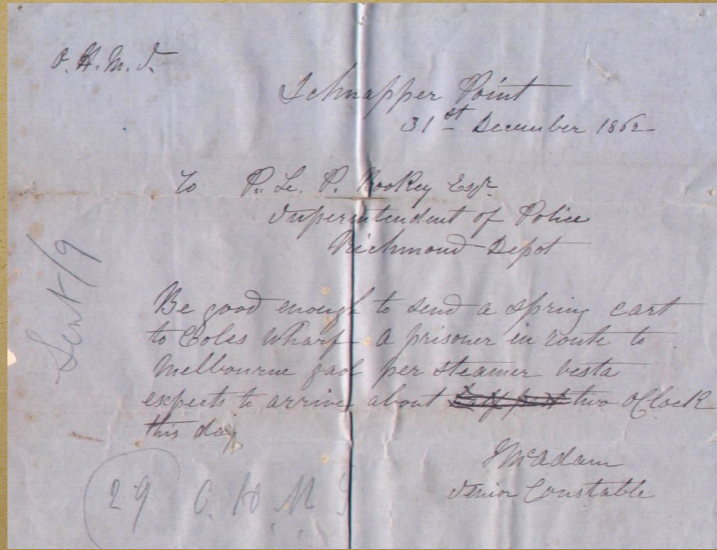 O. H. M. S.
Schnapper Point
31st December 1862
To P. Le. P. Bookey Esqr.
Superintendent of Police
Richmond Depot
Sent 1/9
Be good enough to send a spring cart
to Coles Wharf a prisoner in route to
Melbourne gaol per steamer vesta
expects to arrive about half past two oClock
this day
J McAdam
Senior Constable
29 O. H. M S